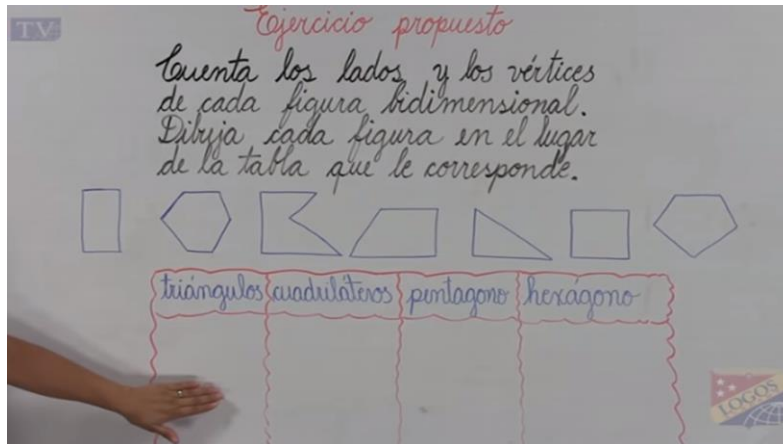 TV
Ejercicio propuesto
Cuenta los lados y los vértices
de cada figura bidimensional.
Dibuja cada figura en el lugar
de la tabla que le corresponde.
triángulos cuadriláteros pentagono hexágono
LOGOS